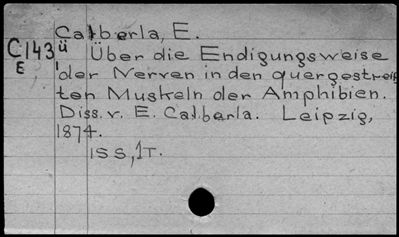 Calberla, E.
C143ü Über die Endigungsweise
E der Nerven in den quergestreif
ten Muskeln der Amphibien.
Diss. v. E. Calberla. Leipzig,
1874.
15 S, 1T.